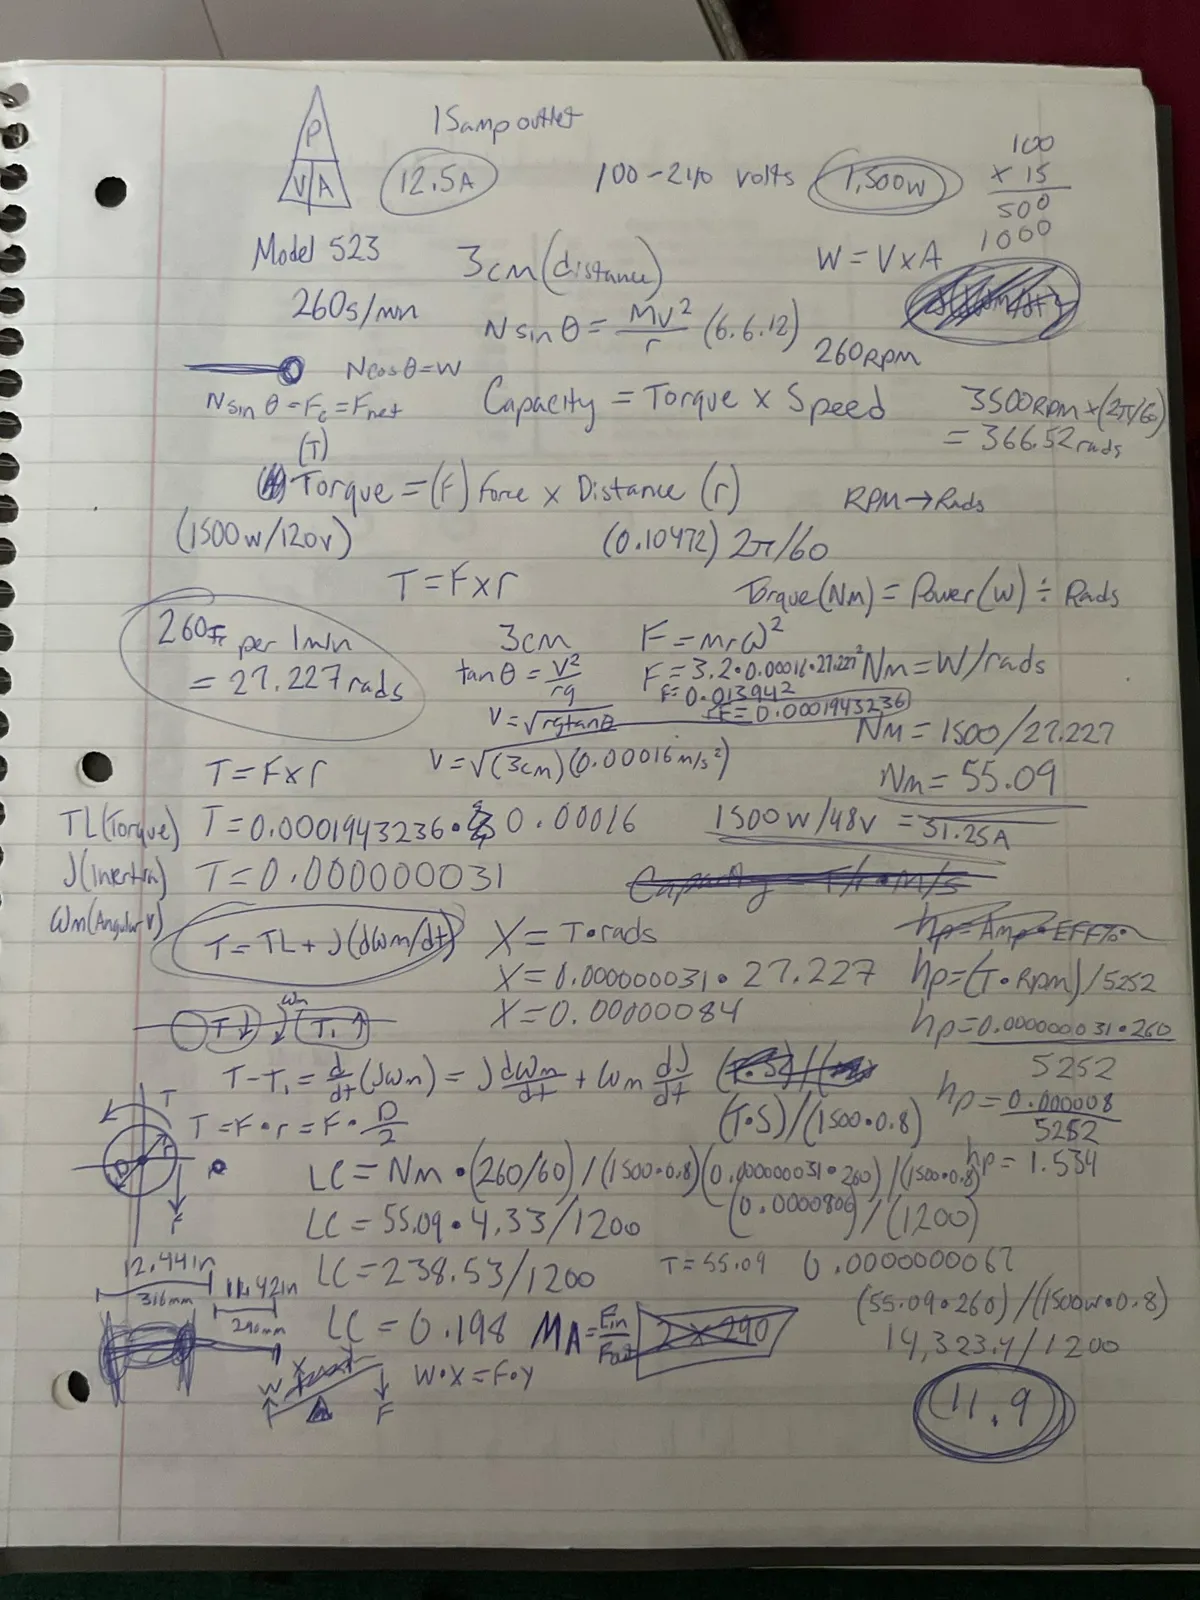 P
V A
15 amp outlet
12.5A
100-240 volts
1,500w
100
x 15
500
1000
Model 523
3cm (distance)
W = V x A
260s/min
N sin θ = Mv²/r (6.6.12)
260RPM
N cos θ = W
N sin θ = Fc = Fnet
Capacity = Torque x Speed
3500RPM x (2π/60)
= 366.52 rads
(T)
Torque = (F) Force x Distance (r)
RPM → Rads
(1500w/120v)
(0.10472) 2π/60
T = F x r
Torque (Nm) = Power (W) ÷ Rads
260 per 1 min
= 27.227 rads
3cm
F = mrω²
tan θ = v²/rg
F = 3.2 • 0.00016 • 27.227²
Nm = W/rads
F = 0.013942
F = 0.0001943236
V = √rg tan θ
Nm = 1500/27.227
T = F x r
V = √(3cm)(0.00016 m/s²)
Nm = 55.09
TL (Torque)
T = 0.0001943236 • 0.00016
1500w/48v = 31.25A
J (Inertia)
T = 0.000000031
Capacity = T/r • M/s
Wm (Angular V)
T = TL + J(dWm/dt)
X = T • rads
hp = Amp • EFF% •
X = 0.000000031 • 27.227
hp = (T • Rpm) / 5252
X = 0.00000084
hp = 0.000000031 • 260
5252
Wm
T T₁
T - T₁ = d/dt (Jωm) = J dωm/dt + ωm dJ/dt
hp = 0.000008
5252
T
T = F • r = F • D/2
(T • S) / (1500 • 0.8)
hp = 1.534
D r
F
LC = Nm • (260/60) / (1500 • 0.8)
(0.000000031 • 260) / (1500 • 0.8)
LC = 55.09 • 4.33 / 1200
(0.0000806) / (1200)
12.44in
316mm
11.42in
290mm
LC = 238.53 / 1200
T = 55.09
0.0000000067
(55.09 • 260) / (1500w • 0.8)
LC = 0.198
MA = Fin/Fout
2 x 290
14,323.4 / 1200
W X F
W • X = F • Y
11.9